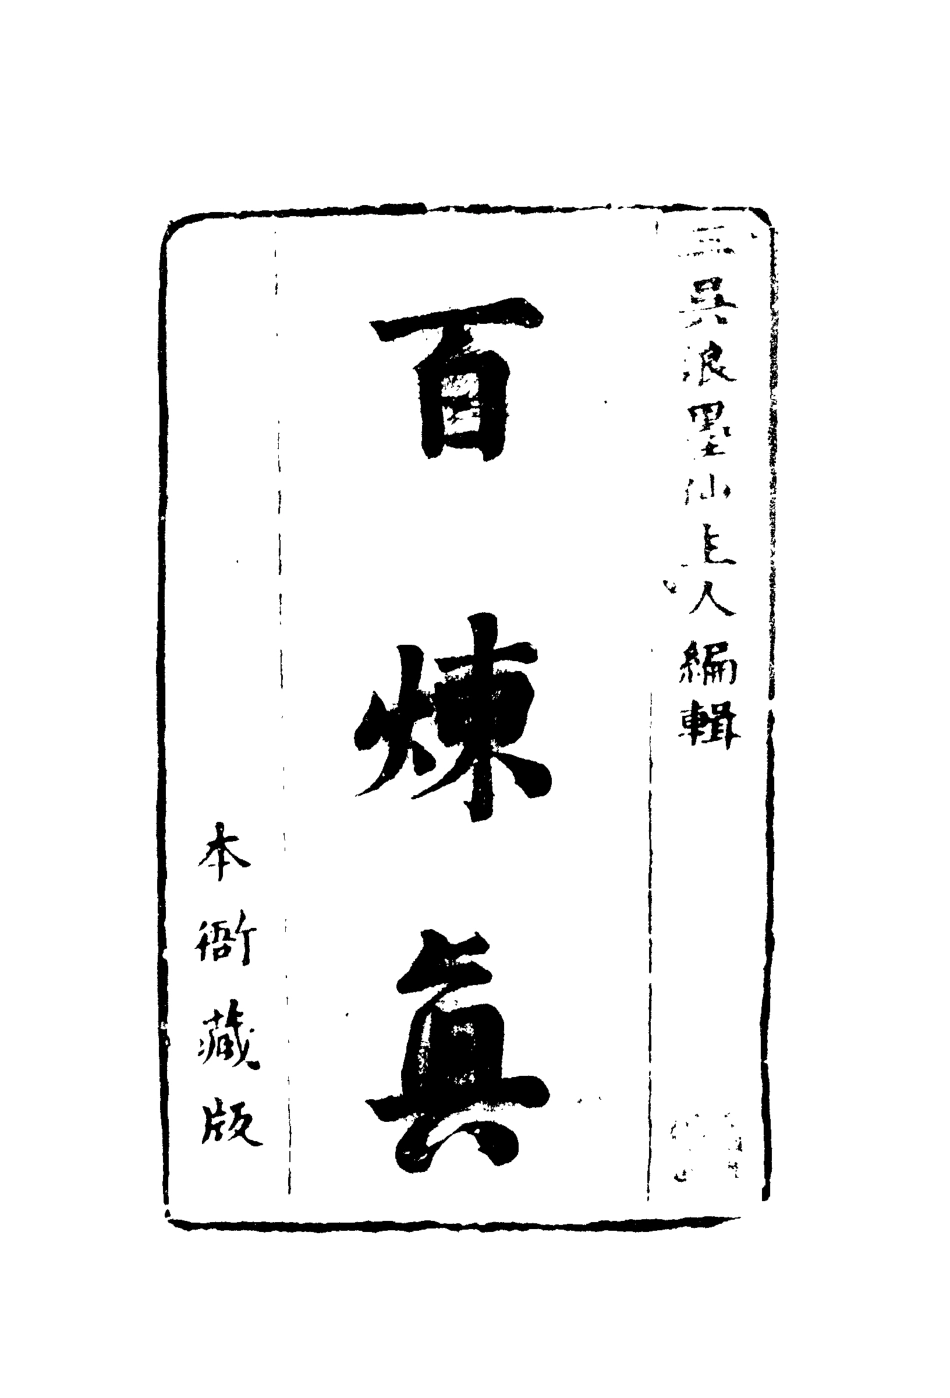 三吳浪墨仙主人編輯
百煉真
本衙藏版